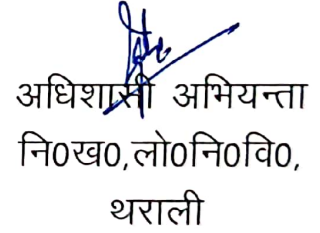 अधिशासी अभियन्ता
नि0ख0,लो0नि0वि0,
थराली